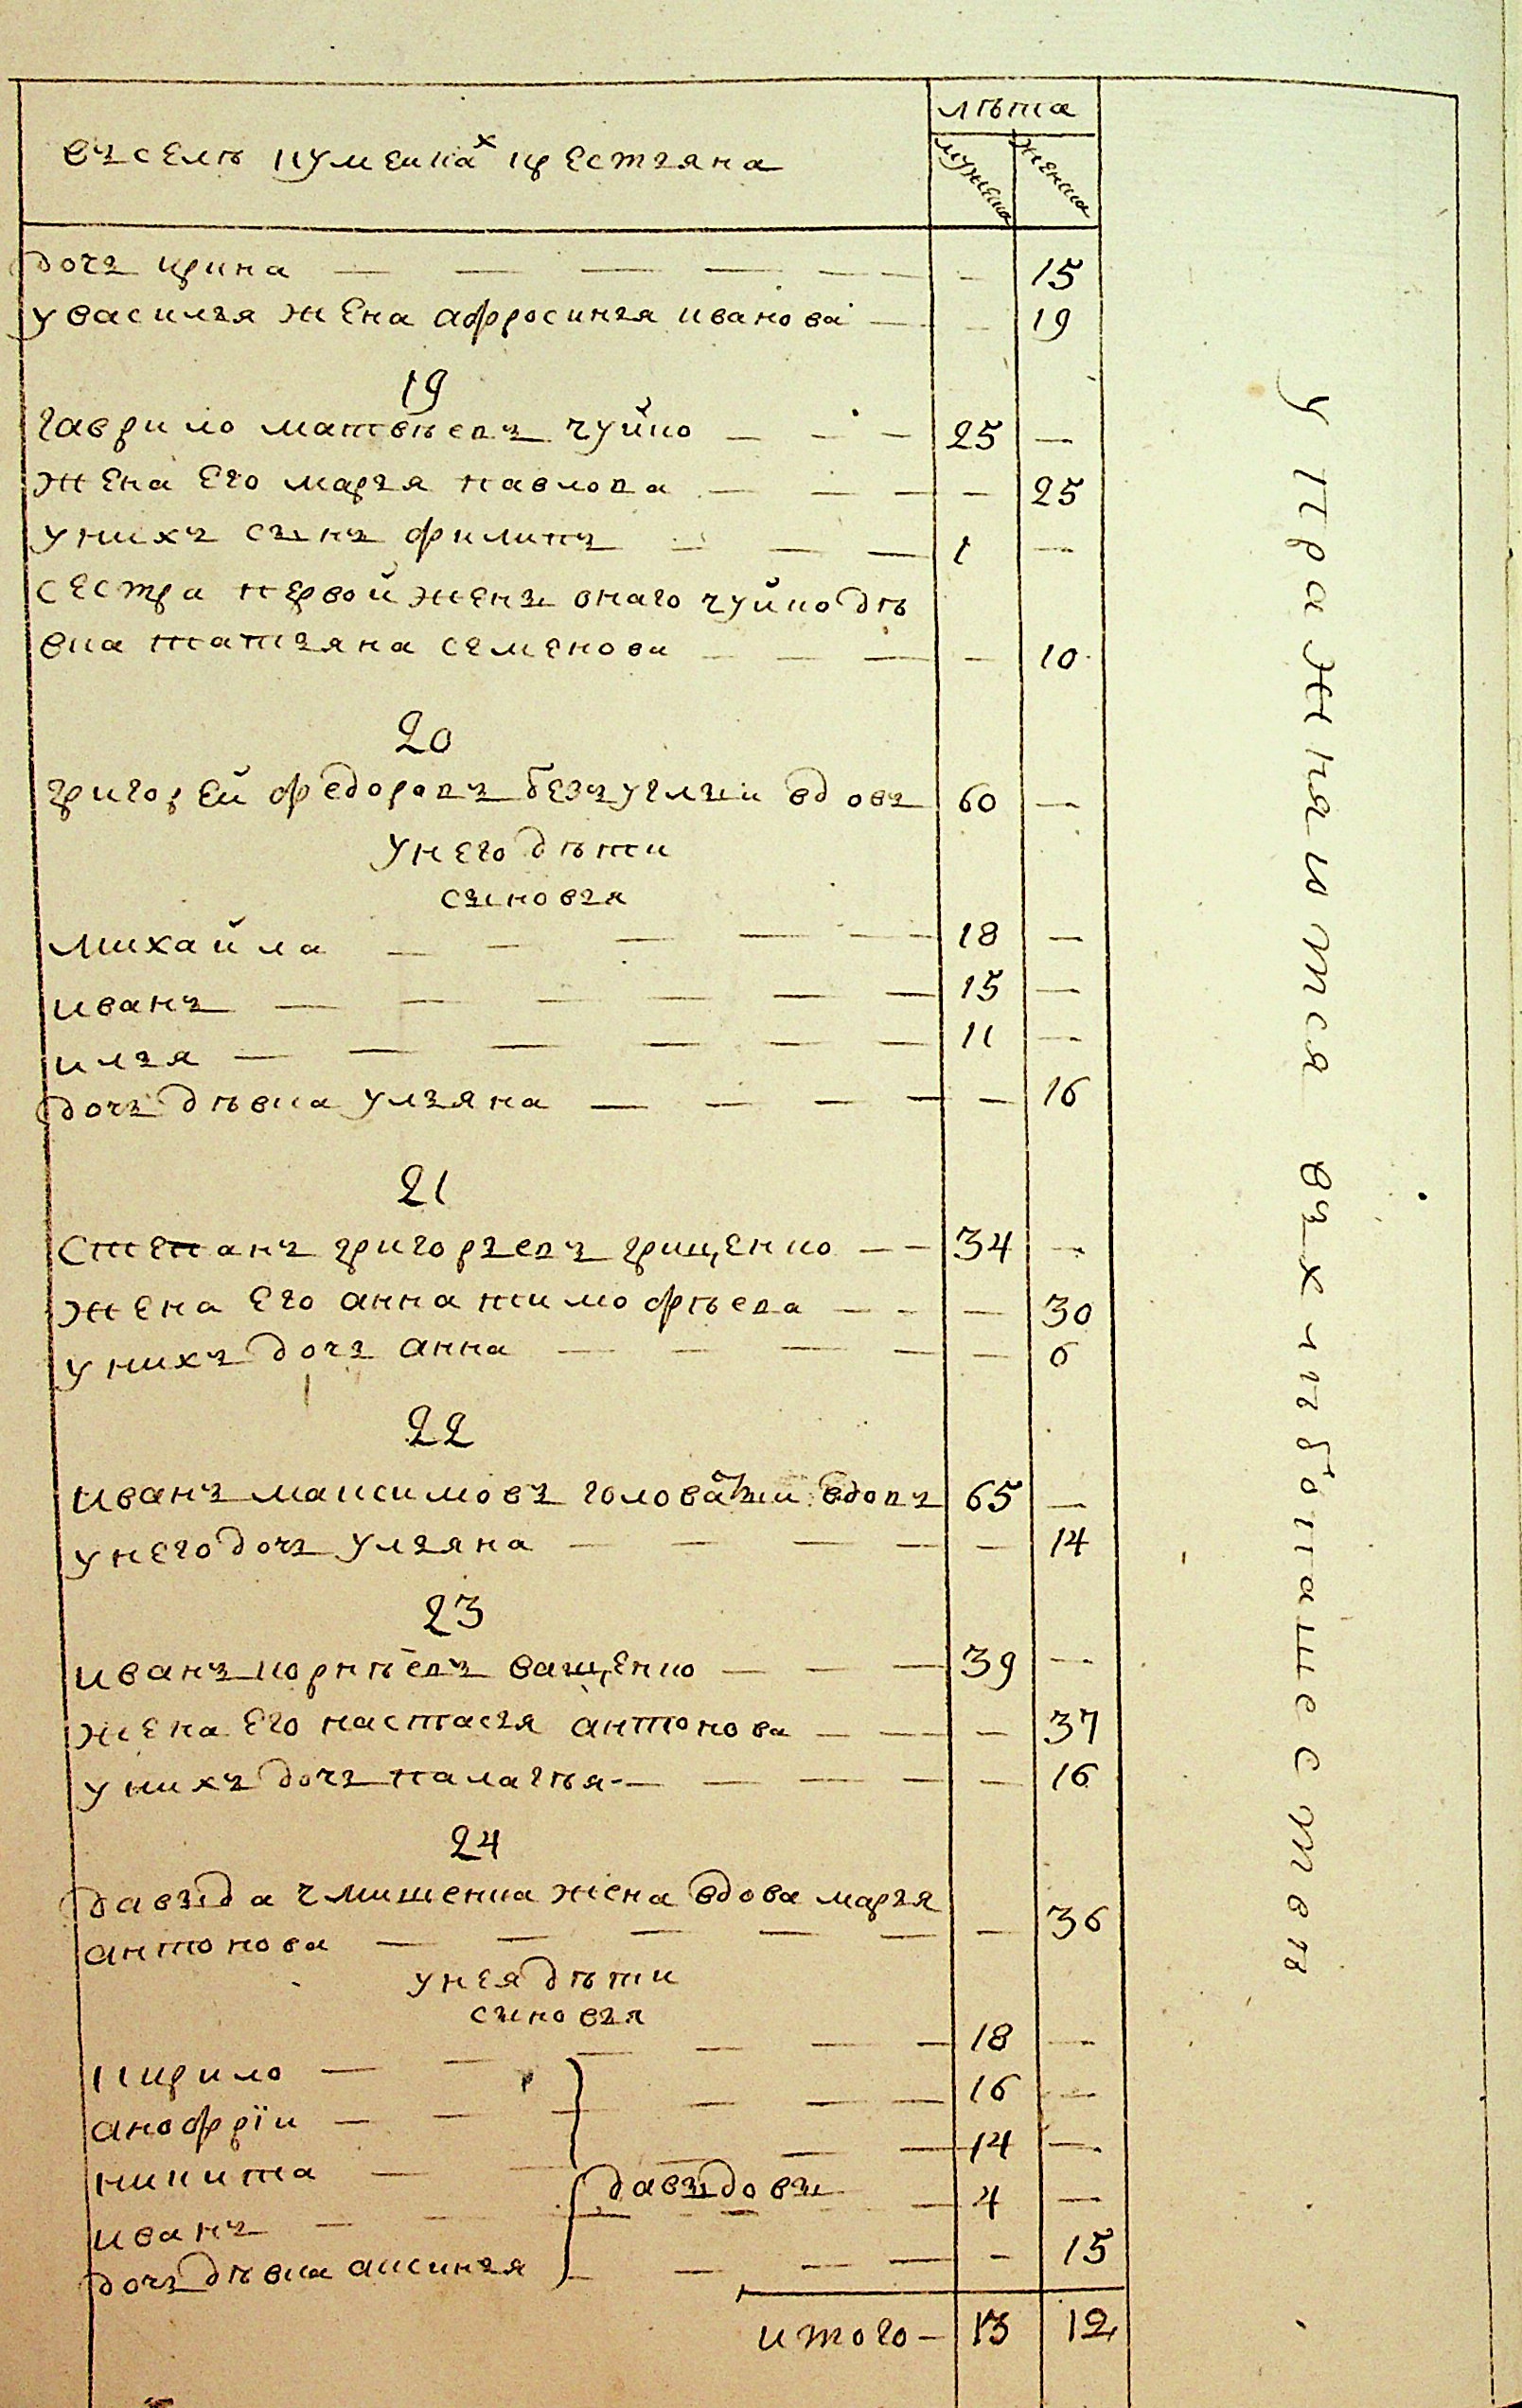 въселѣ кумейках крестьяна
лѣта
мужеска
женска
дочь ирина — — — — — — — 15
увасилья жена афросинья иванова — — 19
19
гаврило матвѣевъ чуйко — — — 25 —
жена его марья павлова — — — — 25
унихъ сынъ филипъ — — — 1 —
сестра первой жены онаго чуйко дѣ
вка татьяна семенова — — — — 10
20
григорей федоровъ безъуглыи вдовъ 60 —
унего дѣти
сыновья
михайла — — — — — — 18 —
иванъ — — — — — — 15 —
илья — — — — — — 11 —
дочь дѣвка ульяна — — — — — 16
21
степанъ григорьевъ грищенко — — 34 —
жена его анна тимофѣева — — — 30
унихъ дочь анна — — — — — 6
22
иванъ максимовъ головатыи вдовъ 65 —
унего дочь ульяна — — — — — 14
23
иванъ корнѣевъ ващенко — — — 39 —
жена его настасья антонова — — — 37
унихъ дочь палагѣя — — — — — 16
24
давыда чмишенка жена вдова марья
антонова — — — — — — 36
унея дѣти
сыновья
кирило — — — — — 18 —
анофріи — — — — — — 16 —
никита — — — — 14 —
иванъ — — — — — — 4 —
давыдовы
дочь дѣвка аксинья — — — — — 15
итого — 13 12
упражняются въхлѣбопашествѣ